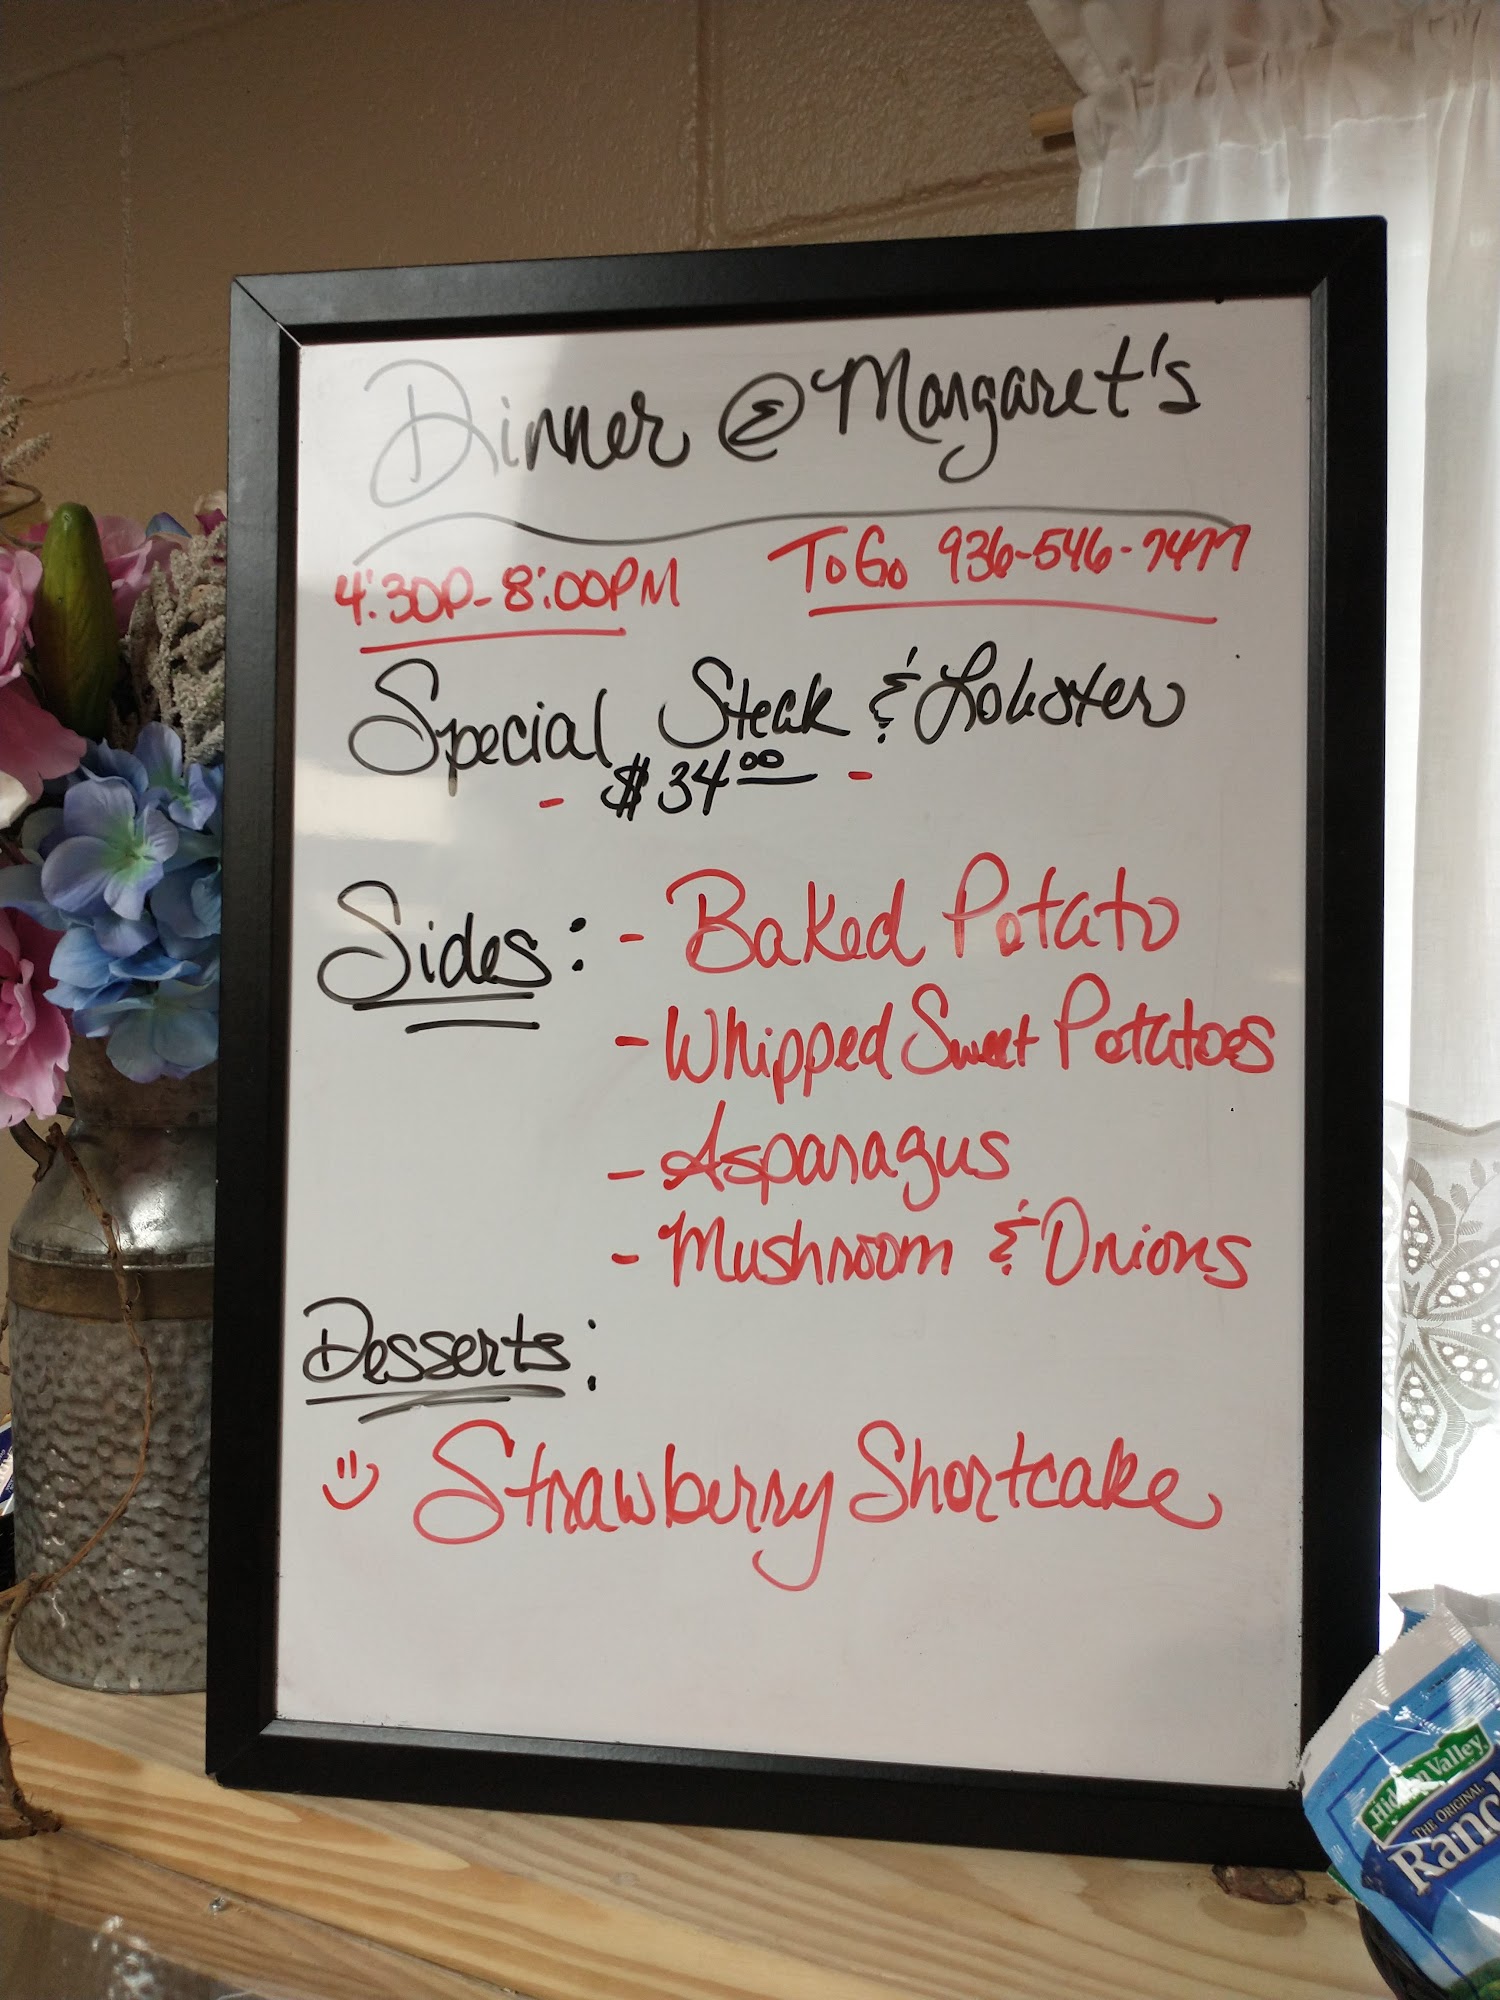 Dinner @ Margaret's
4:30P-8:00PM ToGo 936-546-7477
Special Steak & Lobster
- $34.00 -
Sides: - Baked Potato
- Whipped Sweet Potatoes
- Asparagus
- Mushroom & Onions
Desserts:
Strawberry Shortcake
Hidden Valley
THE ORIGINAL
Ranch